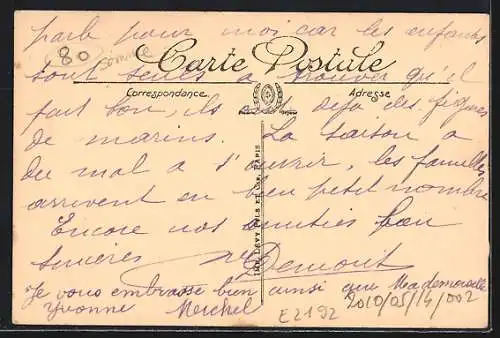 parle pour moi car les enfants
80
comme
Carte Postale
sont seules a trouver qu'il
Correspondance
Adresse
fait bon, ils ont deja des figures
de marins. La saison a
du mal a s'ouvrir, les familles
arrivent en bien petit nombre
Encore nos amities bien
sinceres
Demont
IMP. LEVY FILS ET CIE, PARIS
Je vous embrasse bien ainsi que Mademoiselle
Yvonne Merchel
E2192
2010/05/14/002